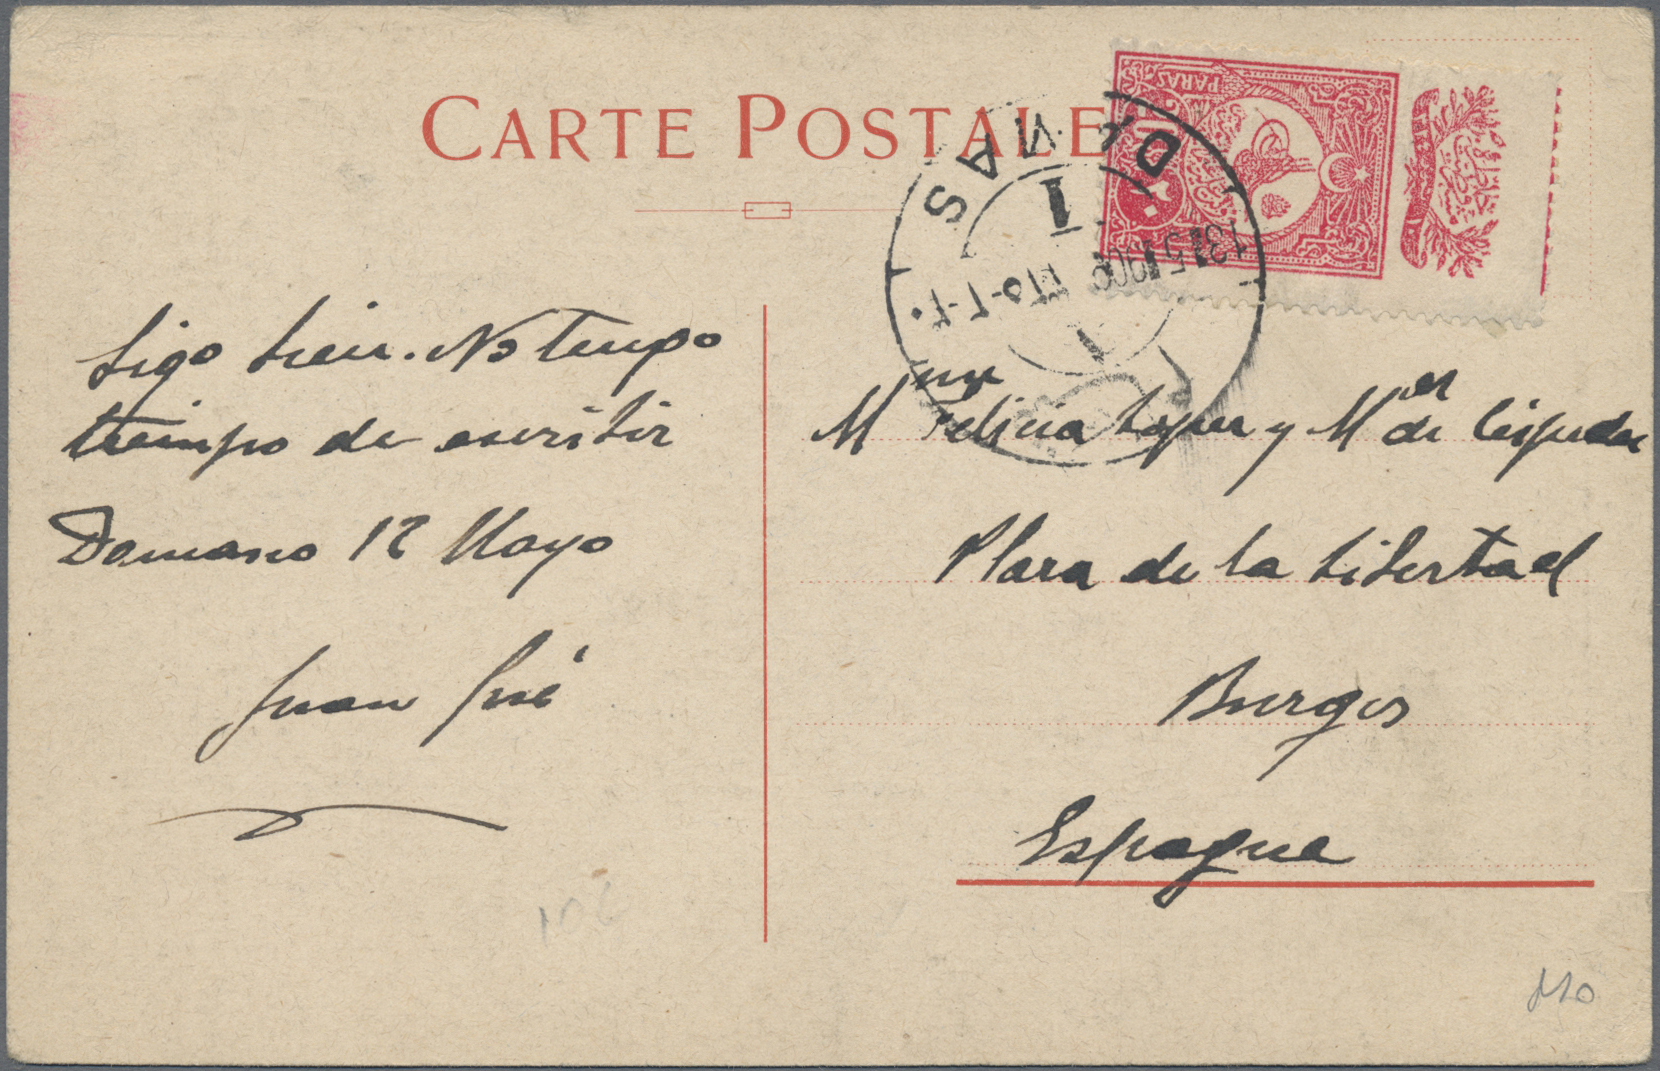 CARTE POSTALE
PARAS
٢٠
DAMAS
1
13 5 190
Sigo bien. No tengo
tiempo de escribir
Damasco 12 Mayo
Juan José
Mme Felicia Lopez y M de Cespedes
Plaza de la Libertad
Burgos
Espagne